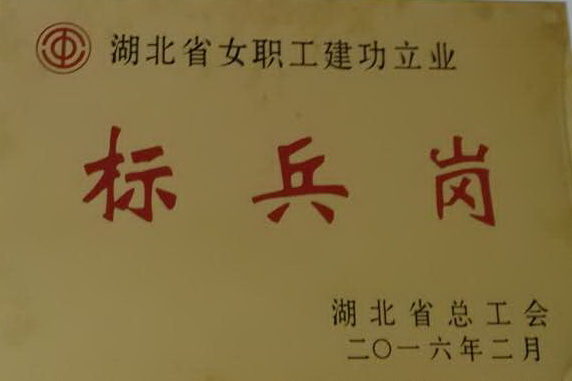 湖北省女职工建功立业
标兵岗
湖北省总工会
二〇一六年二月